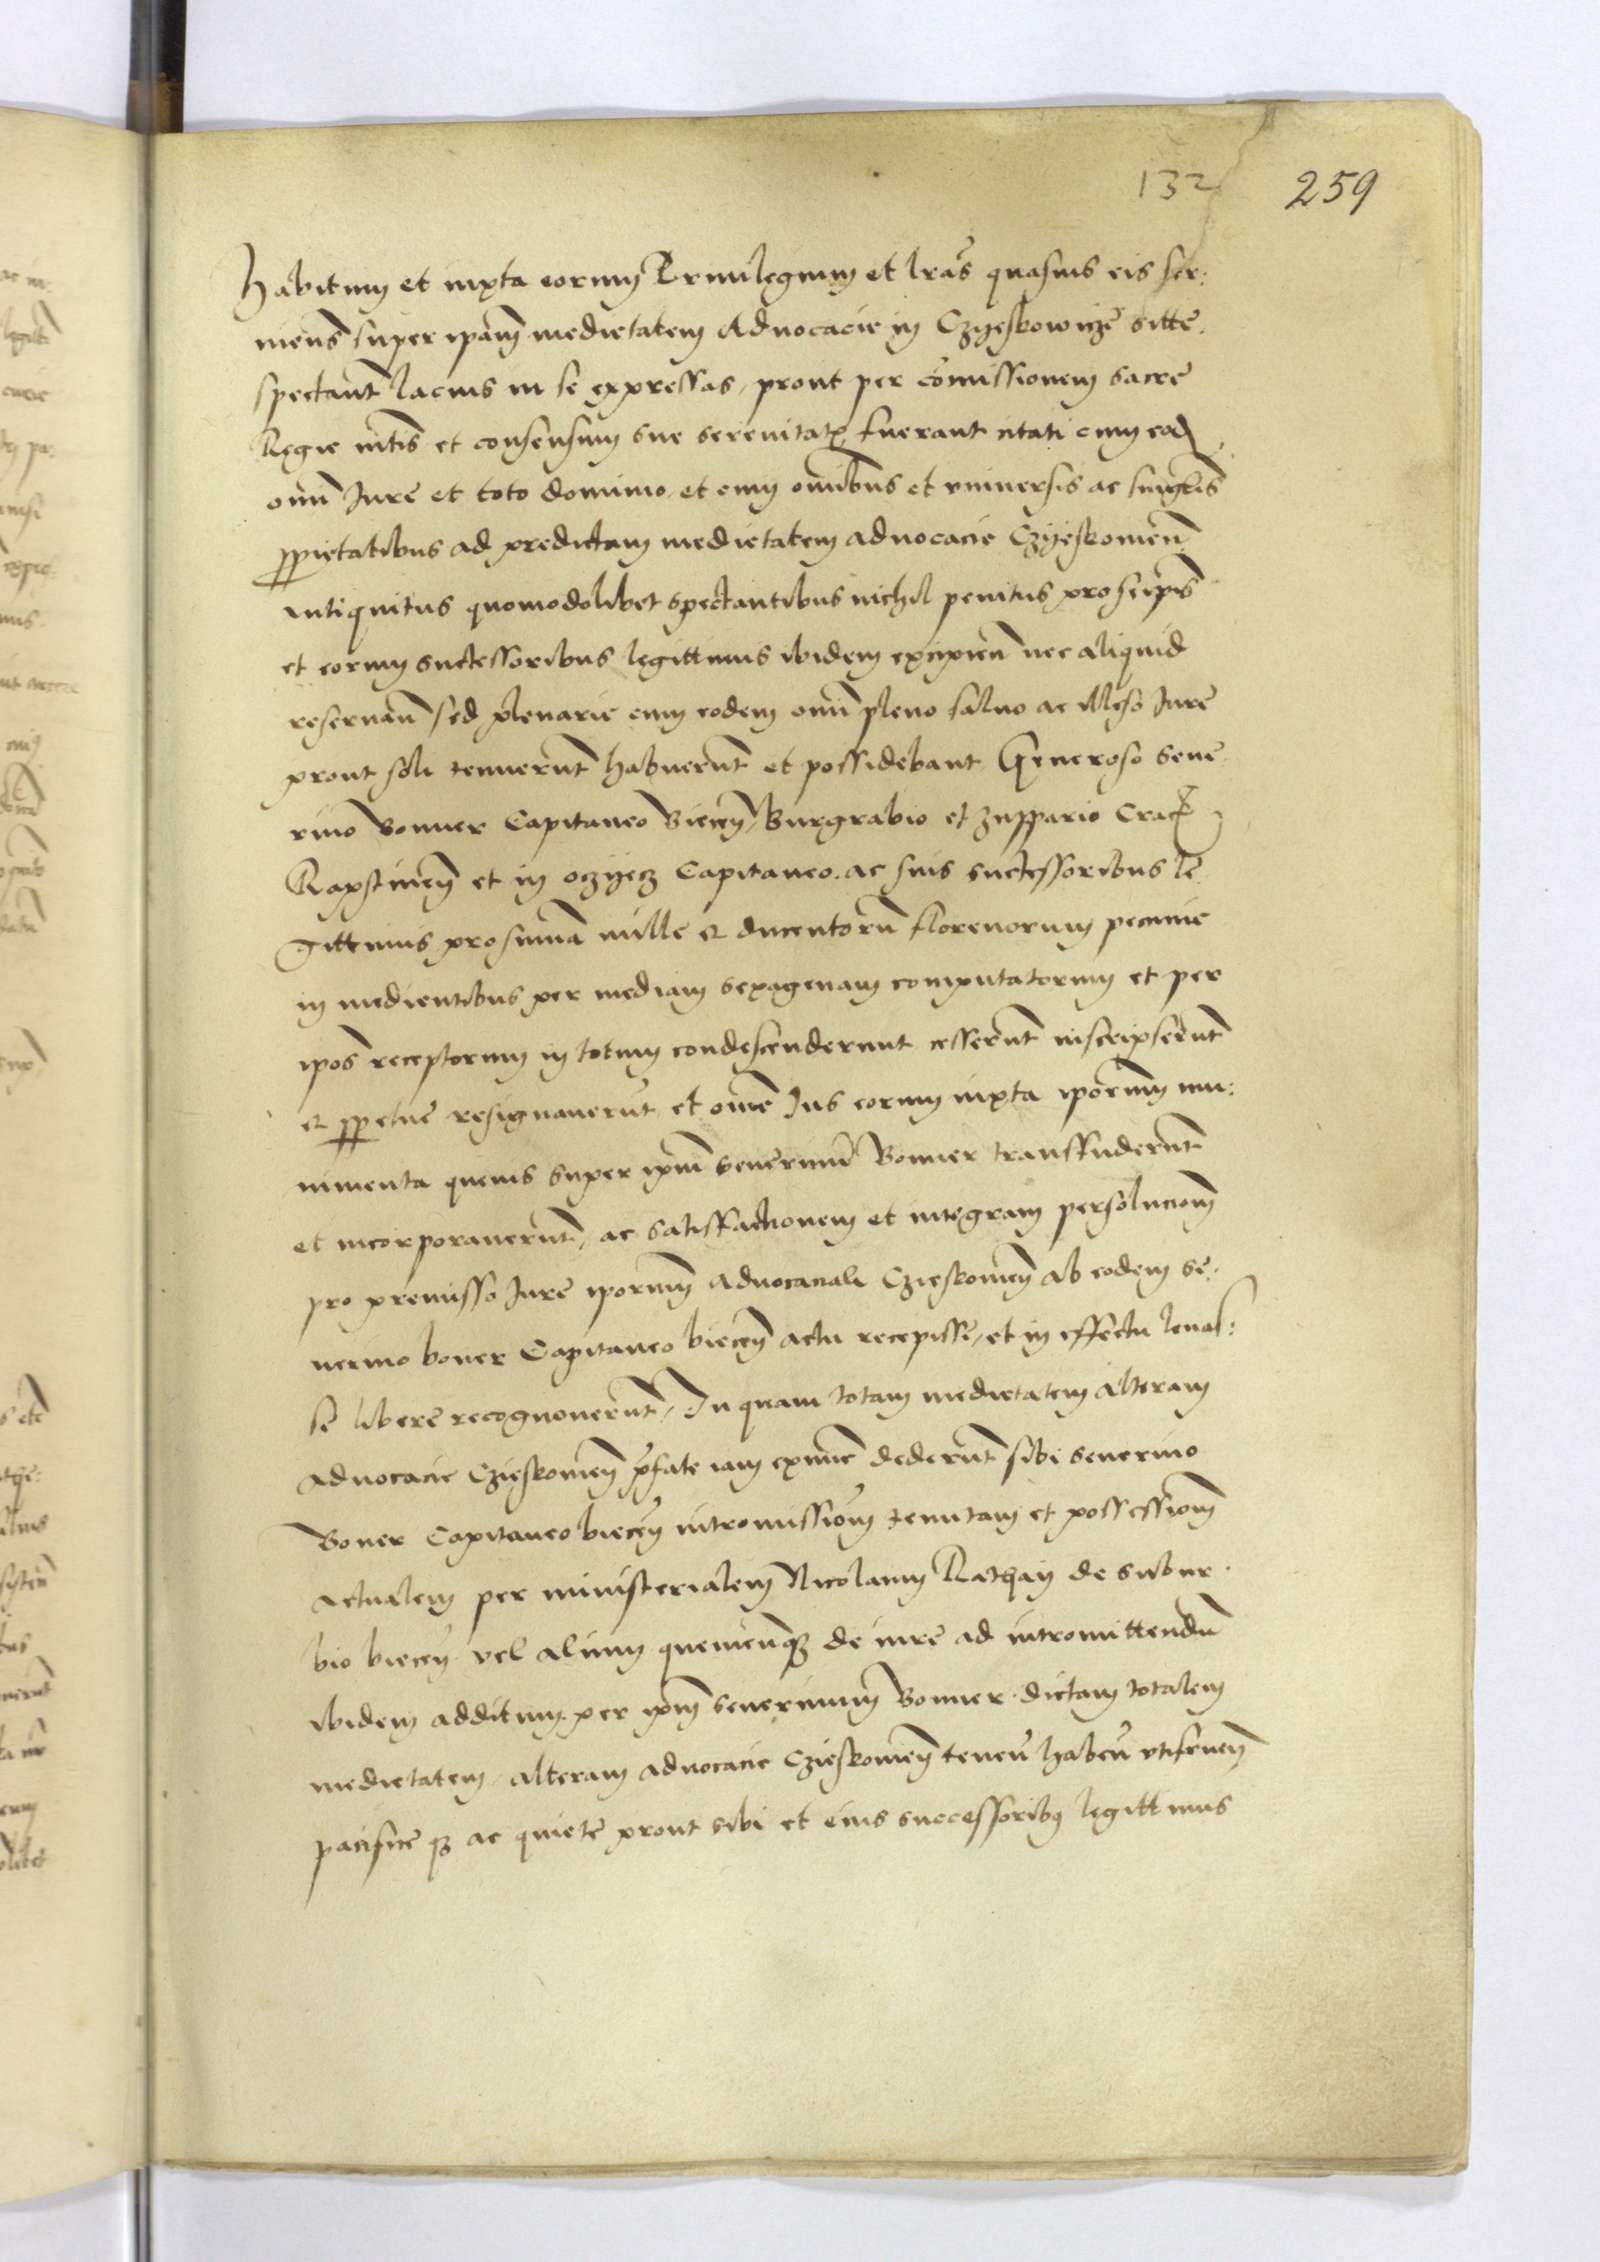 132 259
habitum et iuxta eorum Privilegium et lras quasuis eis ser:
uiens super ipam medietatem Aduocacie in Czyeskowicze sitte
spectant lacius in se expressas, prout per comissionem sacre
Regie mtis et consensum sue serenitatis fuerant citati cum eod
omni Jure et toto dominio, et cum omibus et vniuersis ac singlis
pprietatibus ad predictam medietatem aduocacie Czyeskouien
antiquitus quomodolibet spectantibus nichil penitus pro seipis
et eorum successoribus legittimis ibidem excipien nec aliquid
reseruan sed plenarie cum eodem omi pleno saluo ac illeso Jure
prout soli tenuerunt habuerunt et possidebant Generoso Seue
rino Bonner Capitaneo Biecen Burgrabio et zuppario Crac
Rapstinen et in oczyecz Capitaneo ac suis successoribus le
gittimis pro summa mille et ducentoru florenorum pecunie
in medientibus per mediam sexagenam computatorum et per
ipos receptorum in totum condescenderunt cesserunt inscripserunt
et ppetue resignauerut et ome Jus eorum iuxta iporum mu:
nimenta queuis super ipm Seuerinu Bonner transfuderunt
et incorporauerunt, ac satisfactionem et integram persolucionem
pro premisso Jure iporum aduocaciali Czieskouien ab eodem Se
uerino boner Capitaneo biecen actu recepisse, et in effectu leuas:
se libere recognouerunt, In quam totam medietatem alteram
aduocacie Czieskouien pfate iam exnunc dederunt sibi Seuerino
Boner Capitaneo biecen intromissionem tenutam et possessionem
actualem per ministerialem Nicolaum Rathay de subur
bio biecen vel alium quemcunqz de iure ad intromittendu
ibidem additum per ipm Seuerinum Bonner dictam totalem
medietatem alteram aduocacie Czieskouien teneu habeu vtifruen
pacifice qz ac quiete prout sibi et eius successoribus legittimis